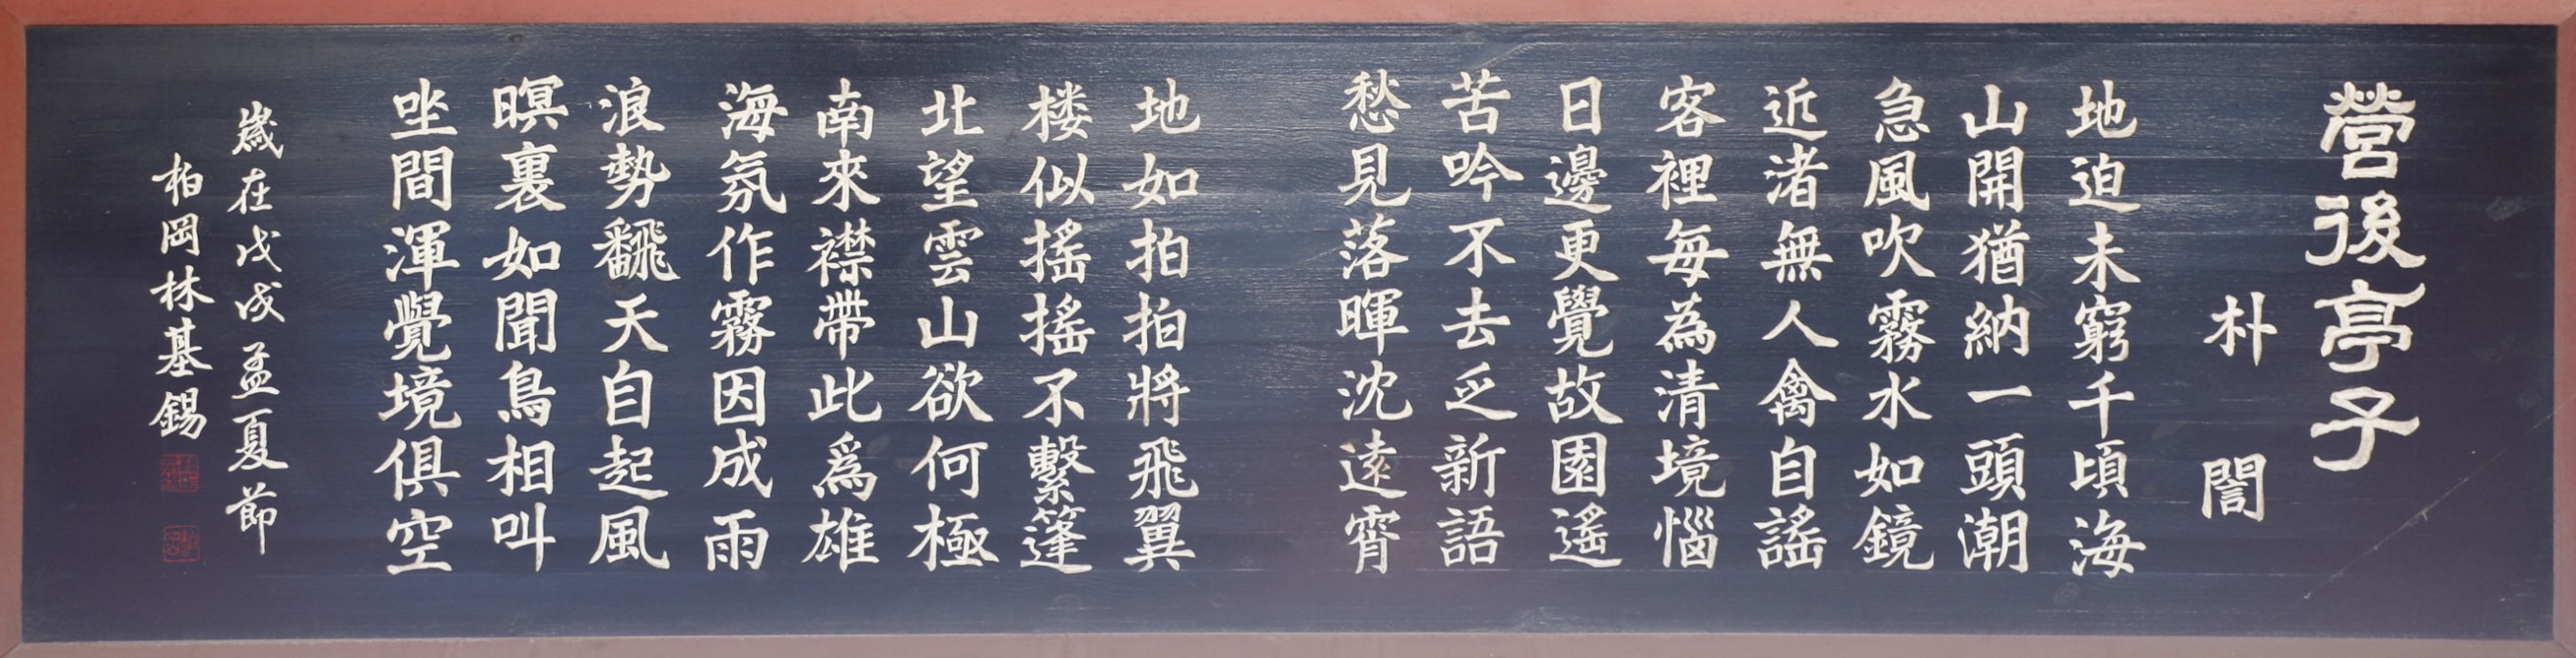 營後亭子
朴誾
地迫未窮千頃海
山開猶納一頭潮
急風吹霧水如鏡
近渚無人禽自謠
客裡每為清境惱
日邊更覺故園遙
苦吟不去乏新語
愁見落暉沈遠霄
地如拍拍將飛翼
楼似搖搖不繫篷
北望雲山欲何極
南來襟帶此爲雄
海氛作霧因成雨
浪勢飜天自起風
暝裏如聞鳥相叫
坐間渾覺境俱空
歲在戊戌孟夏節
柏岡林基錫